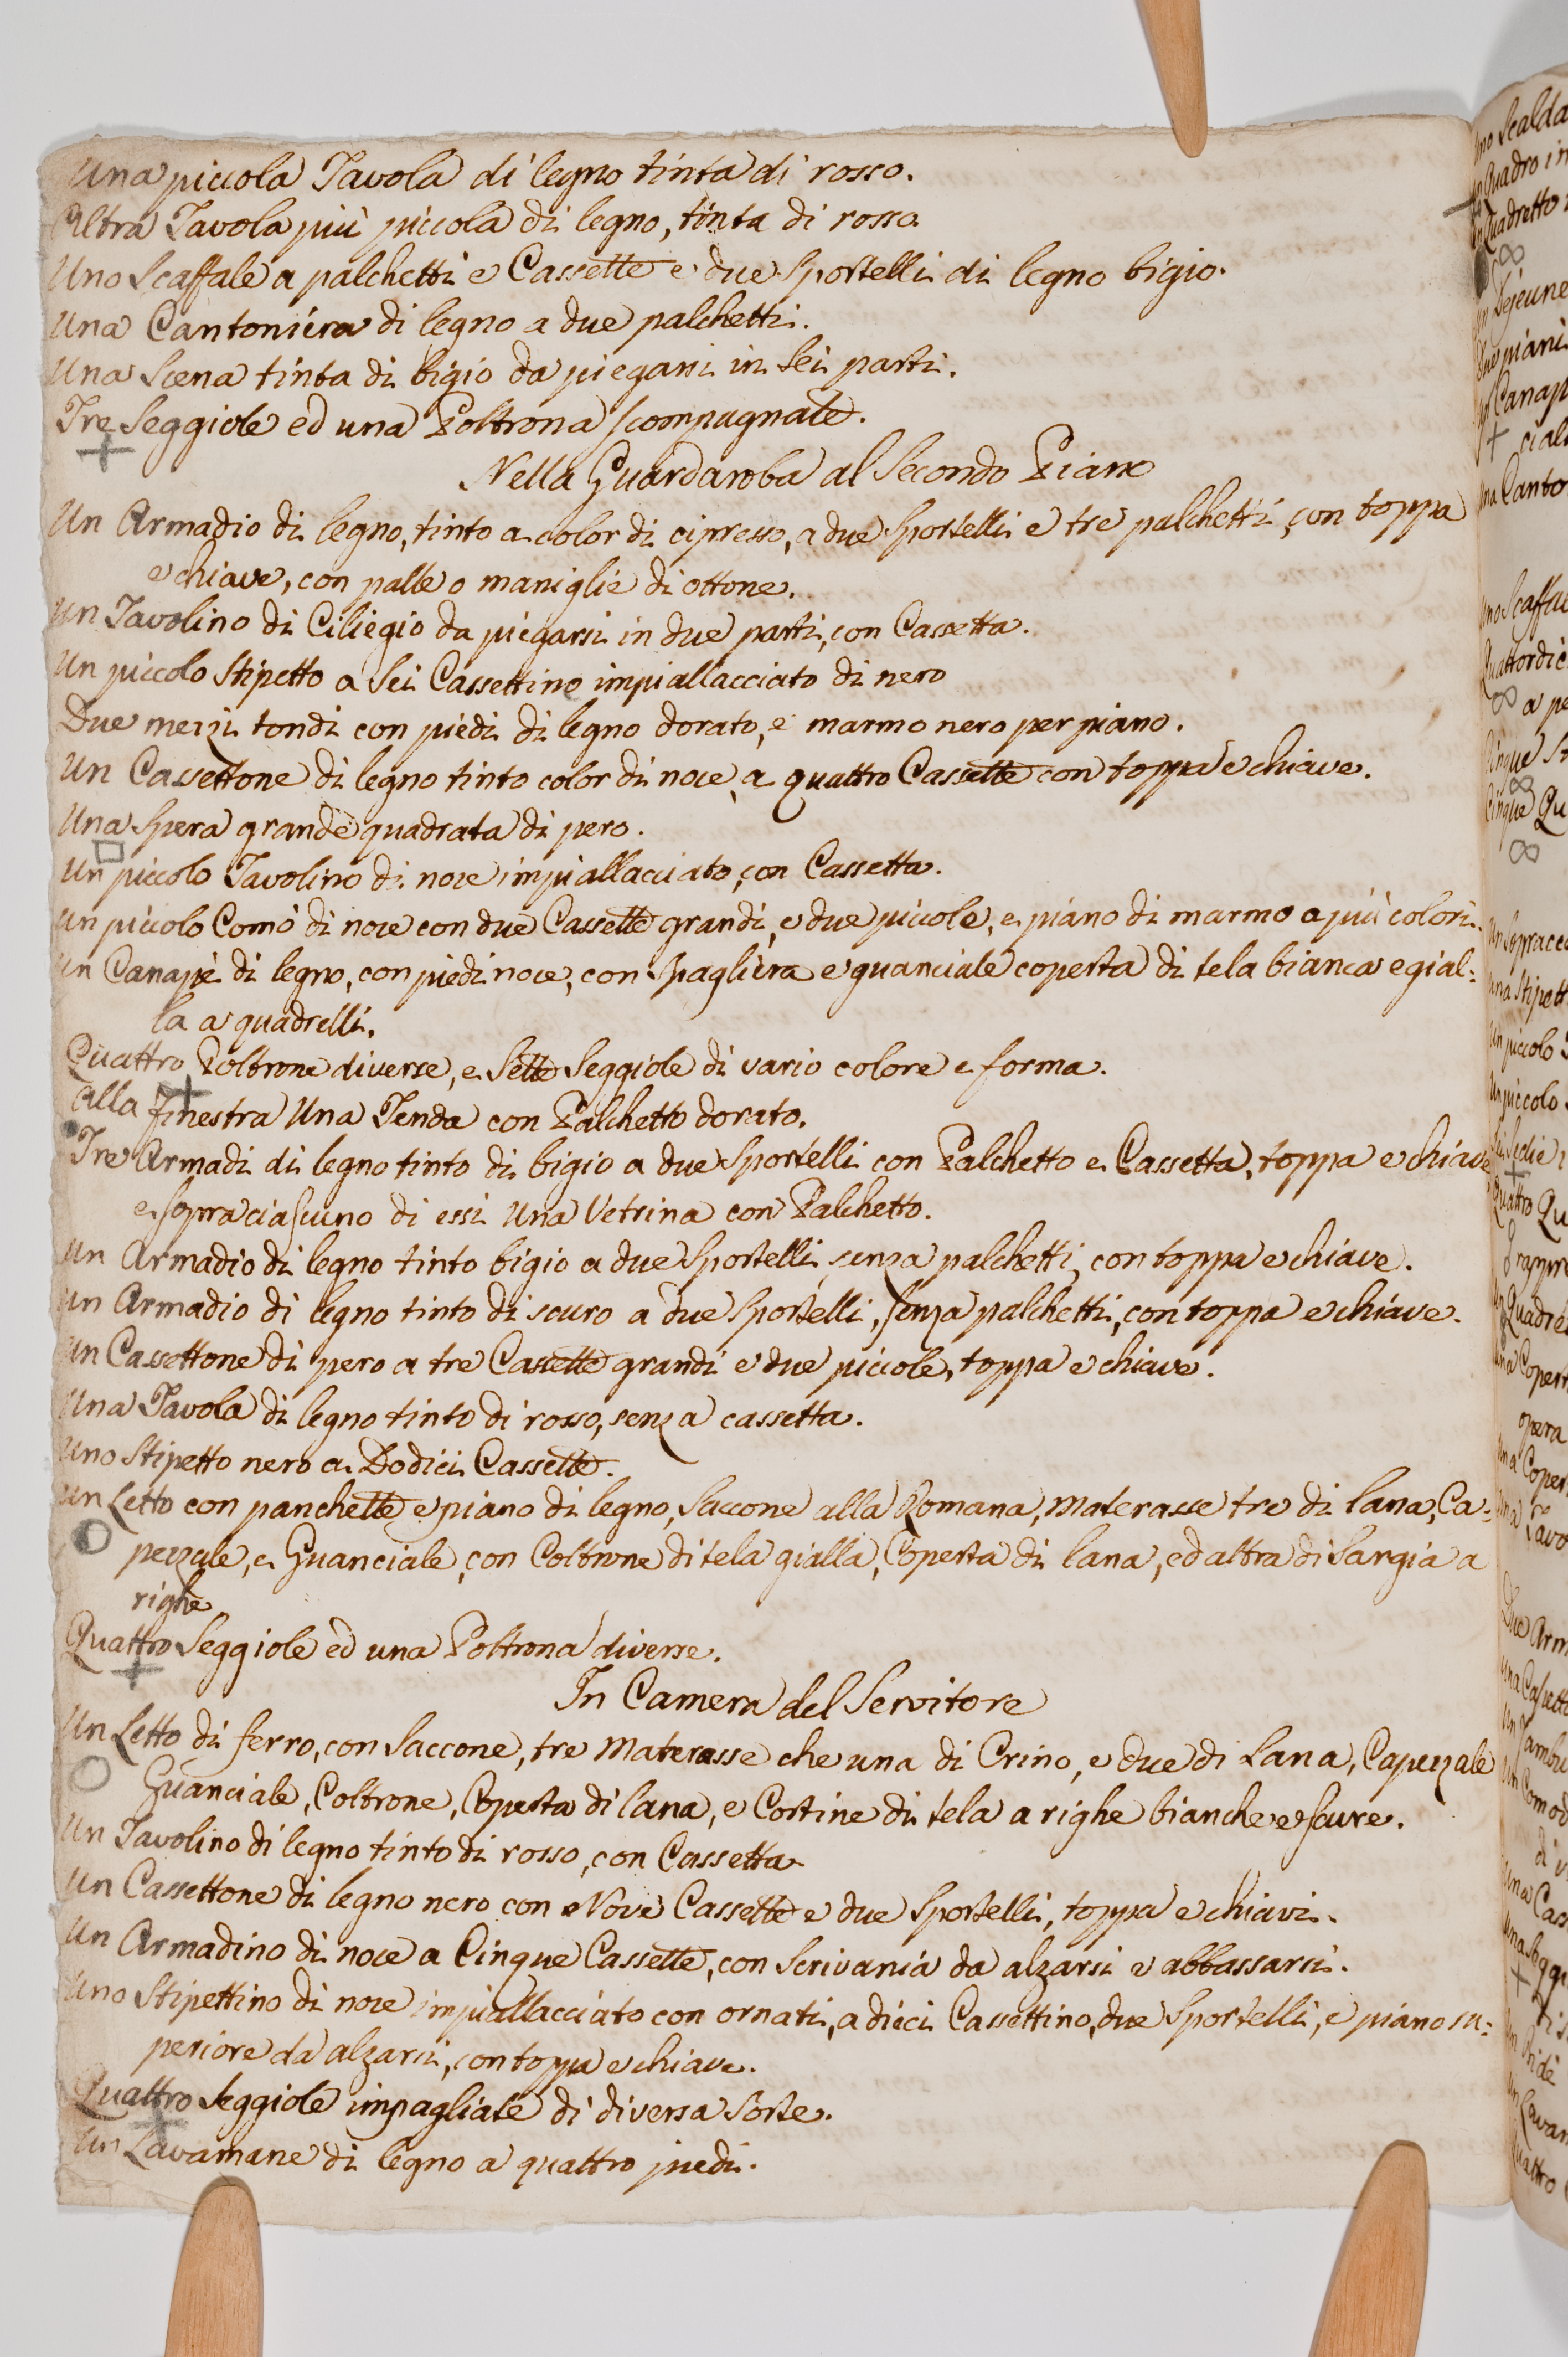 Una piccola Tavola di legno tinta di rosso.
Altra Tavola più piccola di legno, tinta di rosso.
Uno Scaffale a palchetti e Cassette e due Sportelli di legno bigio.
Una Cantoniera di legno a due palchetti.
Una Scena tinta di bigio da piegarsi in Sei parti.
Tre Seggiole ed una Poltrona scompagnate.
Nella Guardaroba al Secondo Piano
Un Armadio di legno, tinto a color di cipresso, a due Sportelli e tre palchetti, con toppa
e chiave, con palle o maniglie di ottone.
Un Tavolino di Ciliegio da piegarsi in due parti, con Cassetta.
Un piccolo Stipetto a Sei Cassettine impiallacciato di nero
Due mezzi tondi con piedi di legno dorato, e marmo nero per piano.
Un Cassettone di legno tinto color di noce, a quattro Cassette con toppa e chiave.
Una Spera grande quadrata di pero.
Un piccolo Tavolino di noce impiallacciato, con Cassetta.
Un piccolo Comò di noce con due Cassette grandi, e due piccole, e piano di marmo a più colori.
Un Canapè di legno, con piedi noce, con Spagliera e guanciale coperta di tela bianca e gial=
la a quadrelli.
Quattro Poltrone diverse, e Sette Seggiole di vario colore e forma.
Alla finestra Una Tenda con Palchetto dorato.
Tre Armadi di legno tinto di bigio a due Sportelli con Palchetto e Cassetta, toppa e chiave
e sopra ciascuno di essi Una Vetrina con Palchetto.
Un Armadio di legno tinto bigio a due Sportelli, senza palchetti, con toppa e chiave.
Un Armadio di legno tinto di scuro a due Sportelli, senza palchetti, con toppa e chiave.
Un Cassettone di pero a tre Cassette grandi e due piccole, toppa e chiave.
Una Tavola di legno tinto di rosso, senza cassetta.
Uno Stipetto nero a Dodici Cassette.
Un Letto con panchette e piano di legno, Saccone alla Romana, Materasse tre di lana, Ca=
pezzale, e Guanciale, con Coltrone di tela gialla, Coperta di lana, ed altra di Sargia a
righe
Quattro Seggiole ed una Poltrona diverse.
In Camera del Servitore
Un Letto di ferro, con Saccone, tre Materasse che una di Crino, e due di Lana, Capezzale
Guanciale, Coltrone, Coperta di lana, e Cortine di tela a righe bianche e scure.
Un Tavolino di legno tinto di rosso, con Cassetta
Un Cassettone di legno nero con Nove Cassette e due Sportelli, toppa e chiavi.
Un Armadino di noce a Cinque Cassette, con Scrivania da alzarsi e abbassarsi.
Uno Stipettino di noce impiallacciato con ornati, a dieci Cassettine, due Sportelli, e piano su=
periore da alzarsi, con toppa e chiave.
Quattro Seggiole impagliate di diversa Sorte.
Un Lavamane di legno a quattro piedi.